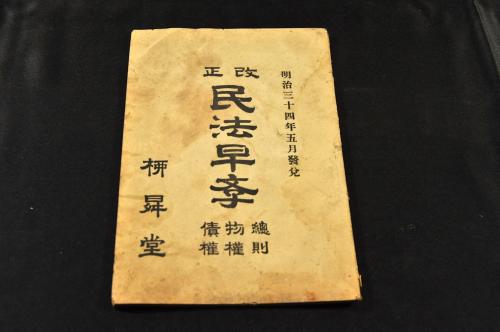 明治三十四年五月發兌
改正
民法早学
總則
物權
債權
柳昇堂